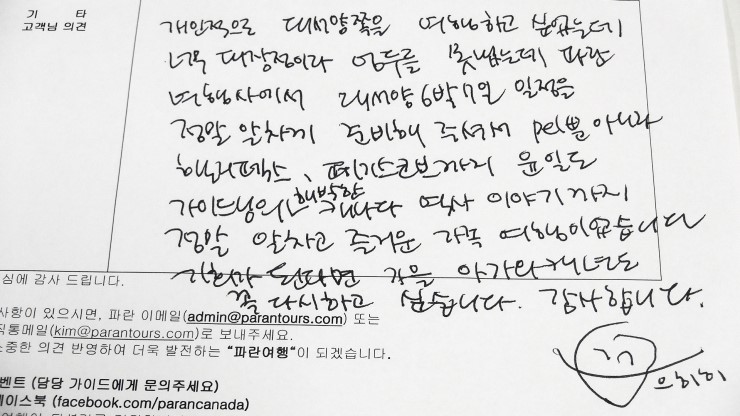 기 타
고객님 의견
개인적으로 대서양쪽을 여행하고 싶었는데
너무 대장정이라 엄두를 못냈는데 파란
여행사에서 대서양 6박7일 일정을
정말 알차게 준비해 주셔서 PEI뿐 아니라
핼리팩스, 페기스코브까지 윤일도
가이드님의 해박한 캐나다 역사 이야기까지
정말 알차고 즐거운 가족 여행이었습니다
기회가 된다면 가을 아가와캐년도
꼭 다시하고 싶습니다. 감사합니다.
심에 감사 드립니다.
사항이 있으시면, 파란 이메일(admin@parantours.com) 또는
직통메일(kim@parantours.com)로 보내주세요.
소중한 의견 반영하여 더욱 발전하는 "파란여행"이 되겠습니다.
벤트 (담당 가이드에게 문의주세요)
이스북 (facebook.com/parancanada)